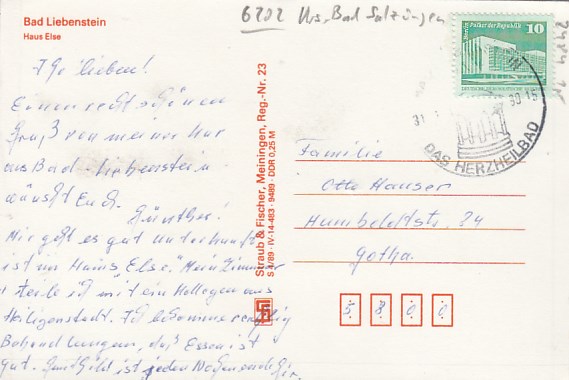 Bad Liebenstein
Haus Else
6202 Krs. Bad Salzungen
Berlin, Palast der Republik
10
DDR
31.
90-15
DAS HERZHEILBAD
Ihr lieben!
Einen recht schönen
Gruß von meiner Kur
aus Bad-Liebenstein
wünscht Euch.
Günther!
Mir geht es gut untergebracht
ist im Haus "Else". Mein Zimmer
teile ich mit ein Kollegen aus
Heiligenstadt. Ich bekomme
Behandlungen, das Essen ist
gut. Ist jeden
Straub & Fischer, Meiningen, Reg.-Nr. 23
S 4/89 · IV-14-483 · 9489 · DDR 0,25 M
Familie
Otto Hauser
Humboldtstr. 24
Gotha.
5 8 0 0